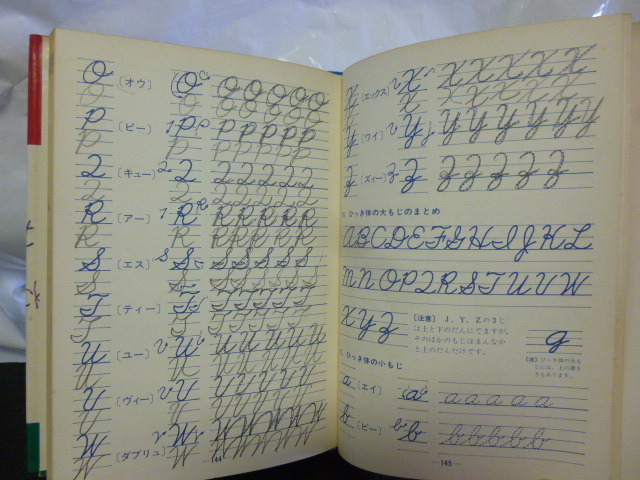 O [オウ] O O O O O O
P [ピー] P P P P P P
Q [キュー] Q Q Q Q Q Q
R [アー] R R R R R R
S [エス] S S S S S S
T [ティー] T T T T T T
U [ユー] U U U U U U
V [ヴィー] V V V V V V
W [ダブリュ] W W W W W W
144
X [エックス] X X X X X X
Y [ワイ] Y Y Y Y Y Y
Z [ズィー] Z Z Z Z Z Z
ひっき体の大もじのまとめ
A B C D E F G H I J K L
M N O P Q R S T U V W
X Y Z
[注意] J、Y、Zの3じ
は上と下のだんにでますが、
そのほかのもじはまんなか
と上のだんだけです。
ひっき体の小もじ
a [エイ] a a a a a a
b [ビー] b b b b b b
145